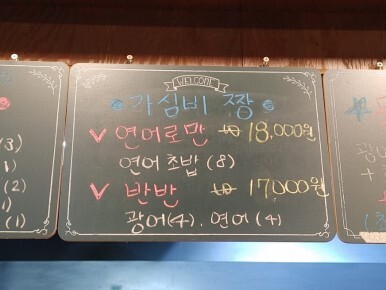 WELCOME
가심비 짱
연어로만 18,000원
연어초밥 (8)
반반 17,000원
광어(4). 연어 (4)
(3)
(2)
(1)
광어